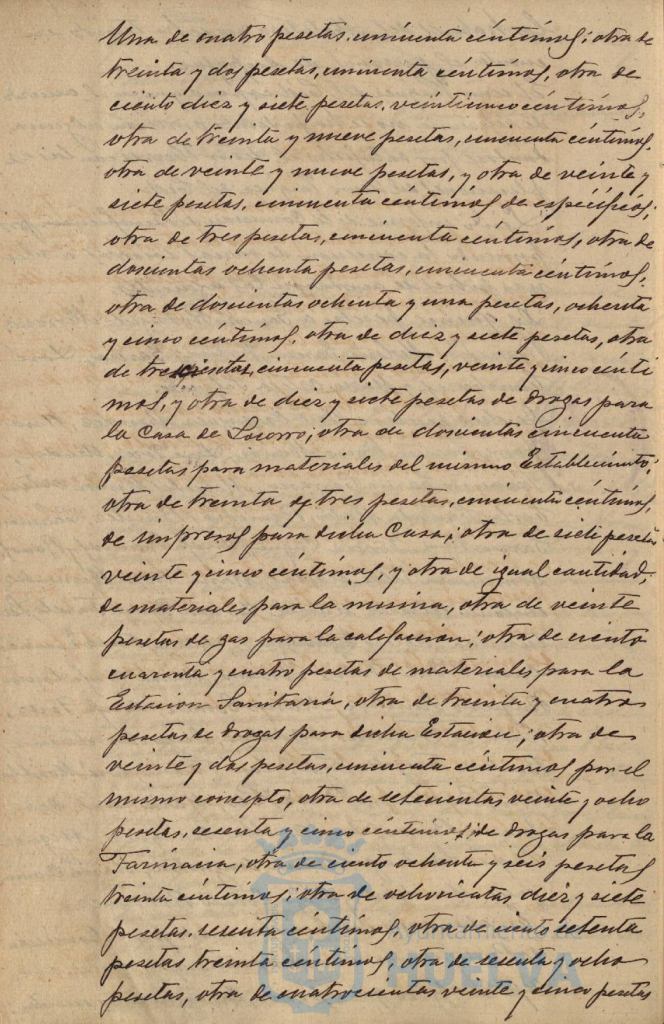 Una de cuatro pesetas, cincuenta céntimos; otra de
treinta y dos pesetas, cincuenta céntimos, otra de
ciento diez y siete pesetas, veinticinco céntimos,
otra de treinta y nueve pesetas, cincuenta céntimos,
otra de veinte y nueve pesetas, y otra de veinte y
siete pesetas, cincuenta céntimos de específicos;
otra de tres pesetas, cincuenta céntimos, otra de
doscientas ochenta pesetas, cincuenta céntimos,
otra de doscientas ochenta y una pesetas, ochenta
y cinco céntimos, otra de diez y siete pesetas, otra
de trescientas cincuenta pesetas, veinte y cinco cénti
mos, y otra de diez y siete pesetas de drogas para
la Casa de Socorro; otra de doscientas cincuenta
pesetas para materiales del mismo Establecimto;
otra de treinta y tres pesetas, cincuenta céntimos,
de impresos para dicha Casa; otra de siete pesetas
veinte y cinco céntimos, y otra de igual cantidad,
de materiales para la misma, otra de veinte
pesetas de gas para la calefacción; otra de ciento
cuarenta y cuatro pesetas de materiales para la
Estacion Sanitaria, otra de treinta y cuatro
pesetas de drogas para dicha Estacion; otra de
veinte y dos pesetas, cincuenta céntimos por el
mismo concepto, otra de setecientas veinte y ocho
pesetas, sesenta y cinco céntimos, de drogas para la
Farmacia, otra de ciento ochenta y seis pesetas
treinta céntimos; otra de ochocientas diez y siete
pesetas, sesenta céntimos, otra de ciento setenta
pesetas treinta céntimos, otra de sesenta y ocho
pesetas, otra de cuatrocientas veinte y cinco pesetas
Ayuntamiento de
HUELVA